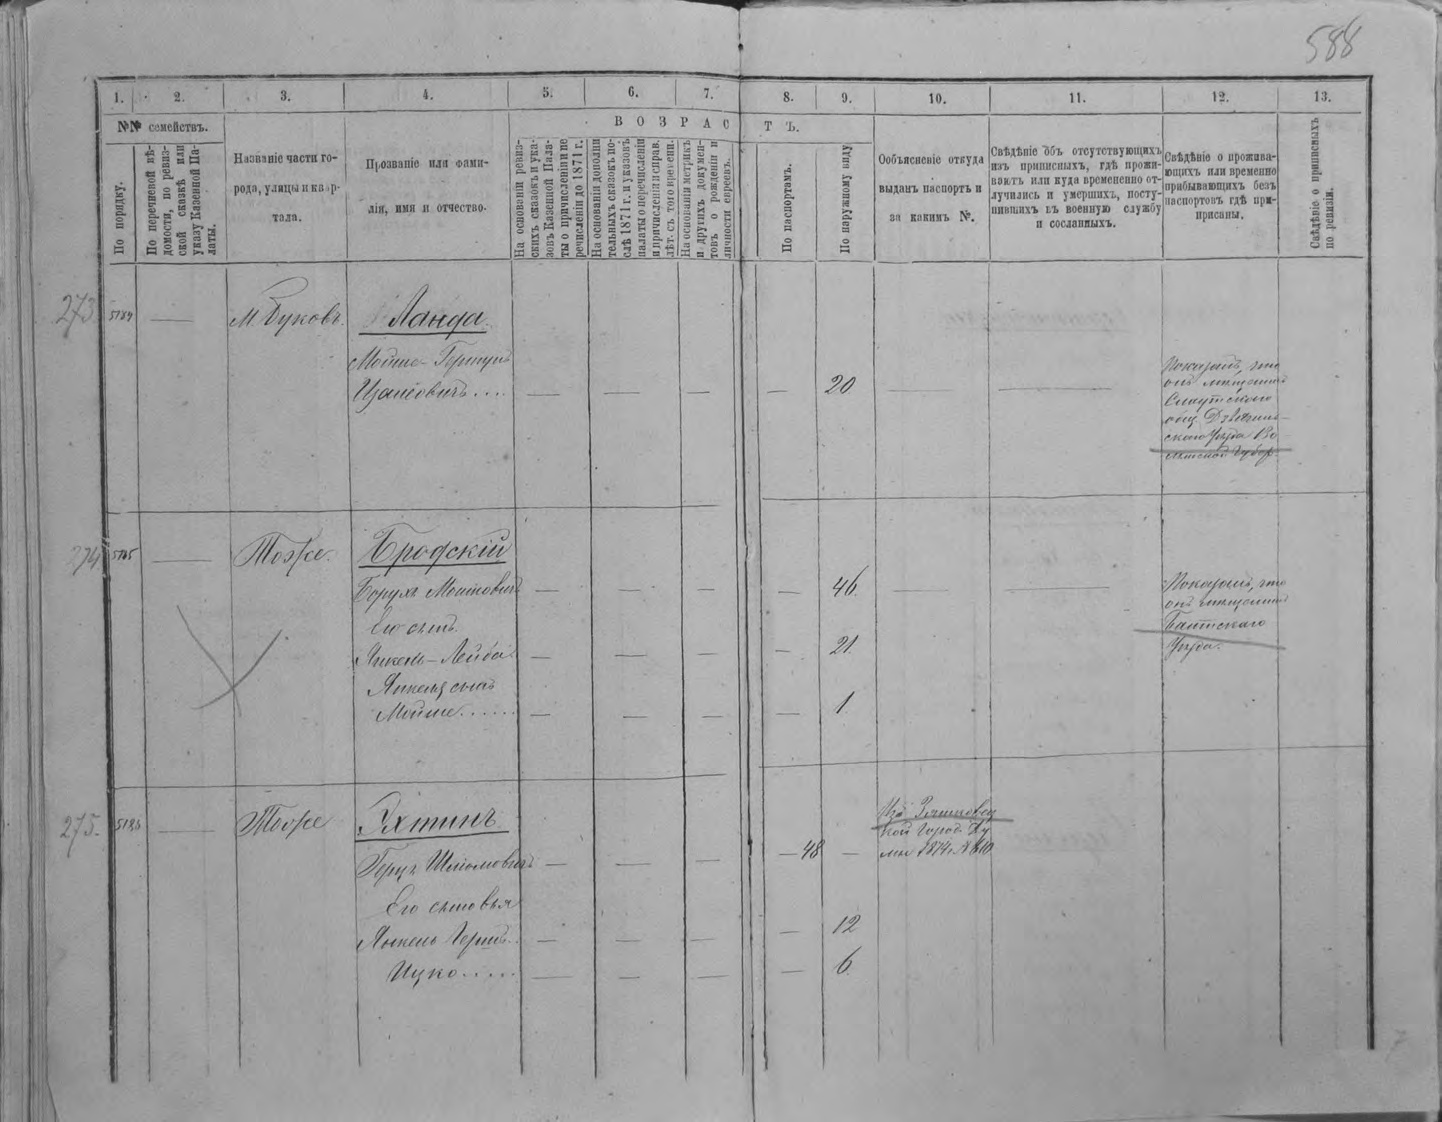 588
1. 2. 3. 4. 5. 6. 7. 8. 9. 10. 11. 12. 13.
№№ семействъ.
По порядку.
По перечневой вѣ-
домости, по ревиз-
ской сказкѣ или
указу Казенной Па-
латы.
Названіе части го-
рода, улицы и квар-
тала.
Прозваніе или фами-
лія, имя и отчество.
ВОЗРАСТЪ.
На основаніи ревиз-
скихъ сказокъ и ука-
зовъ Казенной Пала-
ты о причисленіи и пе
речисленіи до 1871 г.
На основаніи дополни
тельныхъ сказокъ по-
слѣ 1871 г. и указовъ
палаты о перечисленіи
и причисленіи и справ.
лѣт. съ того времени.
На основаніи метрикъ
и другихъ докумен-
товъ о рожденіи и
личности евреевъ.
По паспортамъ.
По наружному виду
Ообъясненіе откуда
выданъ паспортъ и
за какимъ №.
Свѣдѣніе объ отсутствующихъ
изъ приписныхъ, гдѣ прожи-
ваютъ или куда временно от-
лучились и умершихъ, посту-
пившихъ въ военную службу
и сосланныхъ.
Свѣдѣніе о прожива-
ющихъ или временно
прибывающихъ безъ
паспортовъ гдѣ при-
писаны.
Свѣдѣніе о приписныхъ
по ревизіи.
273 5184 М. Буковъ. Ланда
Мойше-
Ицковичъ.... 20
Показалъ, что
онъ мѣщанинъ
274 5185 Тоже. Бродскій
Борухъ Мошковичъ 46.
Его сынъ
Янкель-Лейба 21
Янкеля сынъ
Мойше...... 1
Показалъ, что
онъ мѣщанинъ
Балтскаго
Уѣзда.
275. 5186 Тоже Ляхтинъ
Герцъ Шліомовичъ 48
1874 г. № 610
Его сыновья
Янкель Гершъ.. 12
Ицко..... 6